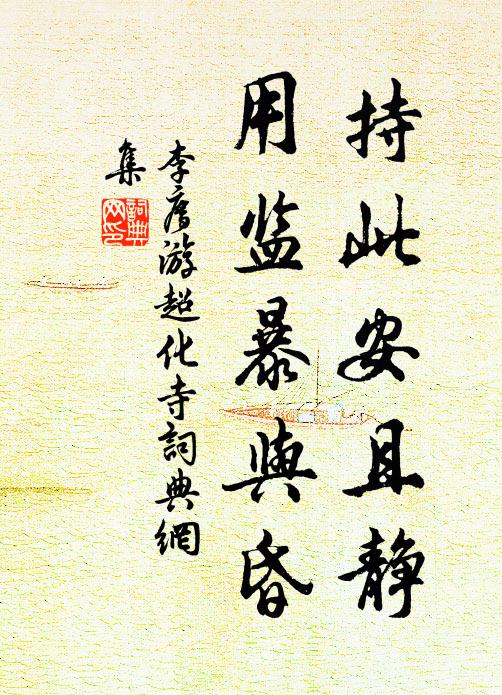 持此安且静
用监暴與昏
李廌游超化寺詞典網
集
詞典
网印